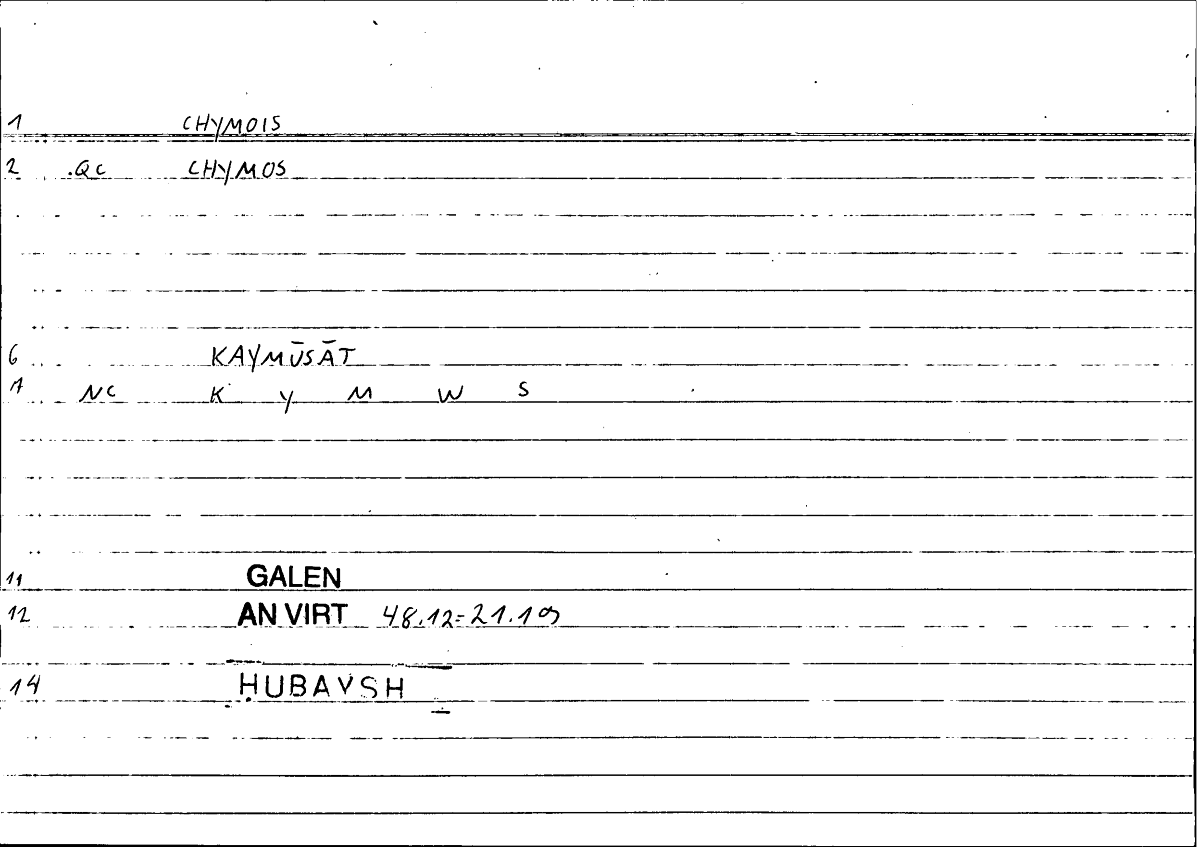 1 CHYMOIS
2 .QC CHYMOS
6 KAYMŪSĀT
7 NC K Y M W S
11 GALEN
12 AN VIRT 48.12=21.19
14 ḤUBAYSH